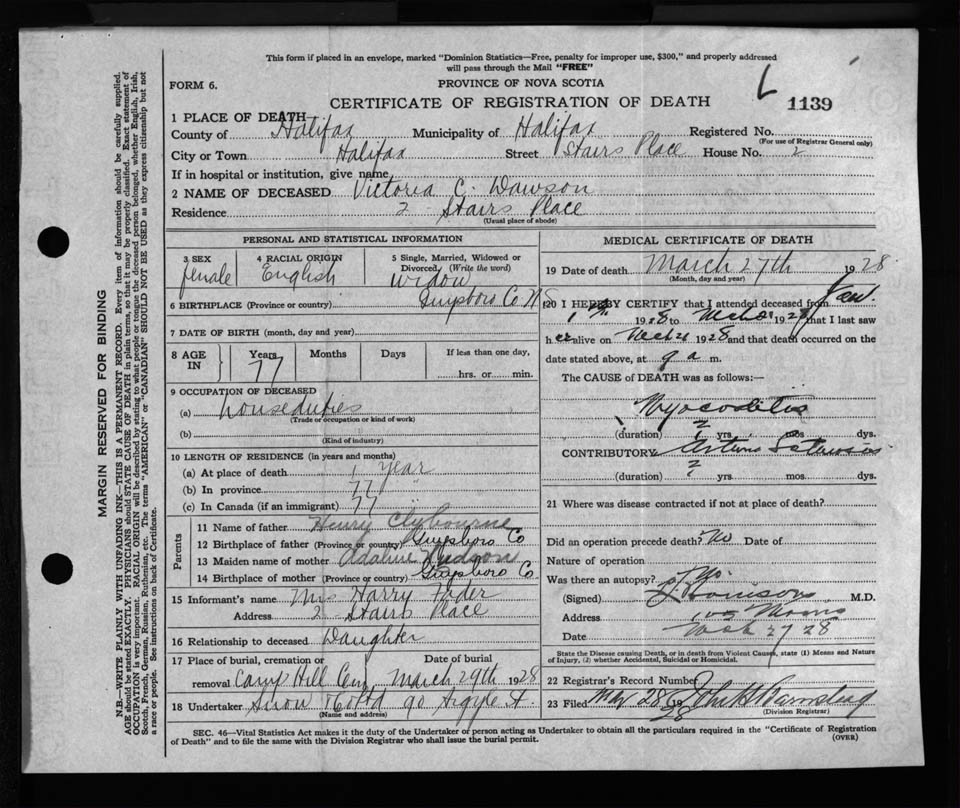 This form if placed in an envelope, marked "Dominion Statistics—Free, penalty for improper use, $300," and properly addressed
will pass through the Mail "FREE"
FORM 6.
PROVINCE OF NOVA SCOTIA
CERTIFICATE OF REGISTRATION OF DEATH
1139
1 PLACE OF DEATH
County of Halifax Municipality of Halifax Registered No.
(For use of Registrar General only)
City or Town Halifax Street Stairs Place House No. 2
If in hospital or institution, give name
2 NAME OF DECEASED Victoria C. Dawson
Residence 2 Stairs Place
(Usual place of abode)
PERSONAL AND STATISTICAL INFORMATION
3 SEX female
4 RACIAL ORIGIN English
5 Single, Married, Widowed or Divorced, (Write the word) widow
6 BIRTHPLACE (Province or country) Guysboro Co N S
7 DATE OF BIRTH (month, day and year)
8 AGE IN Years 77 Months Days If less than one day, hrs. or min.
9 OCCUPATION OF DECEASED
(a) house duties
(Trade or occupation or kind of work)
(b)
(Kind of industry)
10 LENGTH OF RESIDENCE (in years and months)
(a) At place of death 1 year
(b) In province 77 "
(c) In Canada (if an immigrant) 77
Parents
11 Name of father Henry Clybourne
12 Birthplace of father (Province or country) Guysboro Co
13 Maiden name of mother Adaline Hudson
14 Birthplace of mother (Province or country) Guysboro Co.
15 Informant's name Mrs Harry
Address 2 Stairs Place
16 Relationship to deceased Daughter
17 Place of burial, cremation or removal Camp Hill Cem Date of burial March 29th 1928
18 Undertaker Snow & Co Ltd 90 Argyle St
(Name and address)
MEDICAL CERTIFICATE OF DEATH
19 Date of death March 27th 1928
(Month, day and year)
20 I HEREBY CERTIFY that I attended deceased from Jan.
1928 to 1928 that I last saw
her alive on 1928 and that death occurred on the
date stated above, at 9 a m.
The CAUSE of DEATH was as follows:—
(duration) ? yrs. mos. dys.
CONTRIBUTORY
(duration) ? yrs. mos. dys.
21 Where was disease contracted if not at place of death?
Did an operation precede death? No Date of
Nature of operation
Was there an autopsy? No.
(Signed) M.D.
Address
Date 27 28
State the Disease causing Death, or in death from Violent Causes, state (1) Means and Nature
of Injury, (2) whether Accidental, Suicidal or Homicidal.
22 Registrar's Record Number
23 Filed Mar 28 1928
(Division Registrar)
SEC. 46—Vital Statistics Act makes it the duty of the Undertaker or person acting as Undertaker to obtain all the particulars required in the "Certificate of Registration
of Death" and to file the same with the Division Registrar who shall issue the burial permit.
(OVER)
MARGIN RESERVED FOR BINDING
N.B.—WRITE PLAINLY WITH UNFADING INK—THIS IS A PERMANENT RECORD. Every item of information should be carefully supplied.
AGE should be stated EXACTLY. PHYSICIANS should STATE CAUSE OF DEATH in plain terms, so that it may be properly classified. Exact statement of
OCCUPATION is very important. RACIAL ORIGIN will be described by stating to what people or tongue the deceased person belonged, whether English, Irish,
Scotch, French, German, Russian, Ruthenian, etc. The terms "AMERICAN" or "CANADIAN" SHOULD NOT BE USED as they express citizenship but not
a race or people. See instructions on back of Certificate.